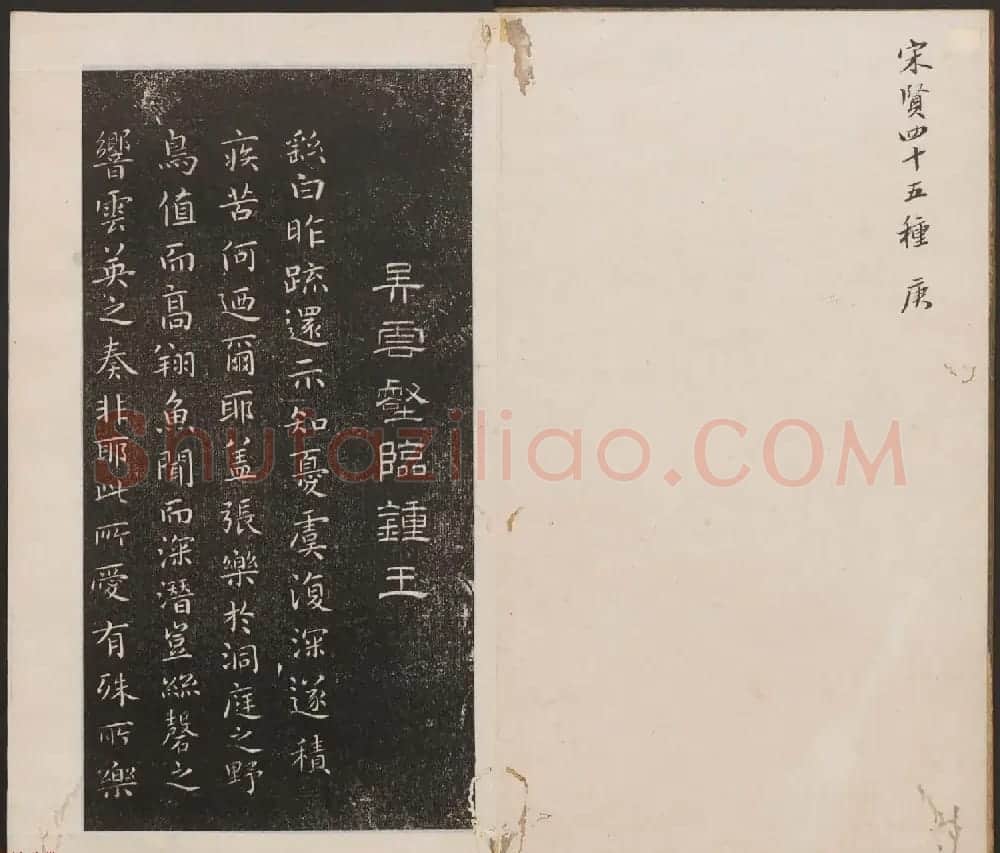 宋賢四十五種 庚
吴雲壑臨鍾王
繇白昨疏還示知憂虞復深遂積
疾苦何迺爾耶盖張樂於洞庭之野
鳥值而高翔魚聞而深潛豈絲磬之
響雲英之奏非耶此所愛有殊所樂
Shufaziliao.COM